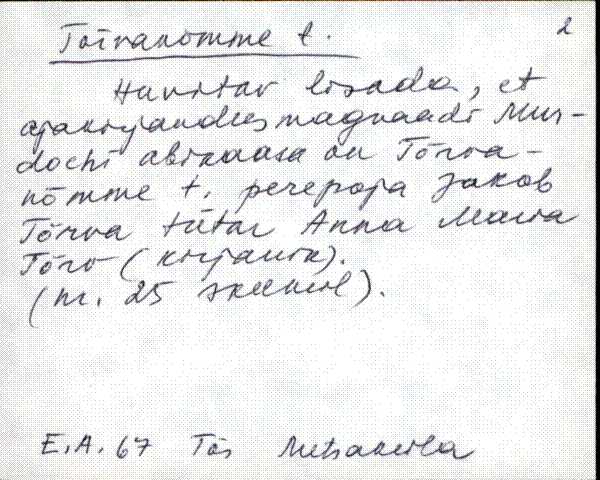 Tõrvanõmme t. 2
Huvitav lisada, et
ajakirjandusmagnaadi Mur-
dochi abikaasa on Tõrva-
nõmme t. perepoja Jakob
Tõrva tütar Anna Maria
Tõrv (kirjanik).
(nr. 25 skeemil).
E.A. 67 Tõs Metsakula